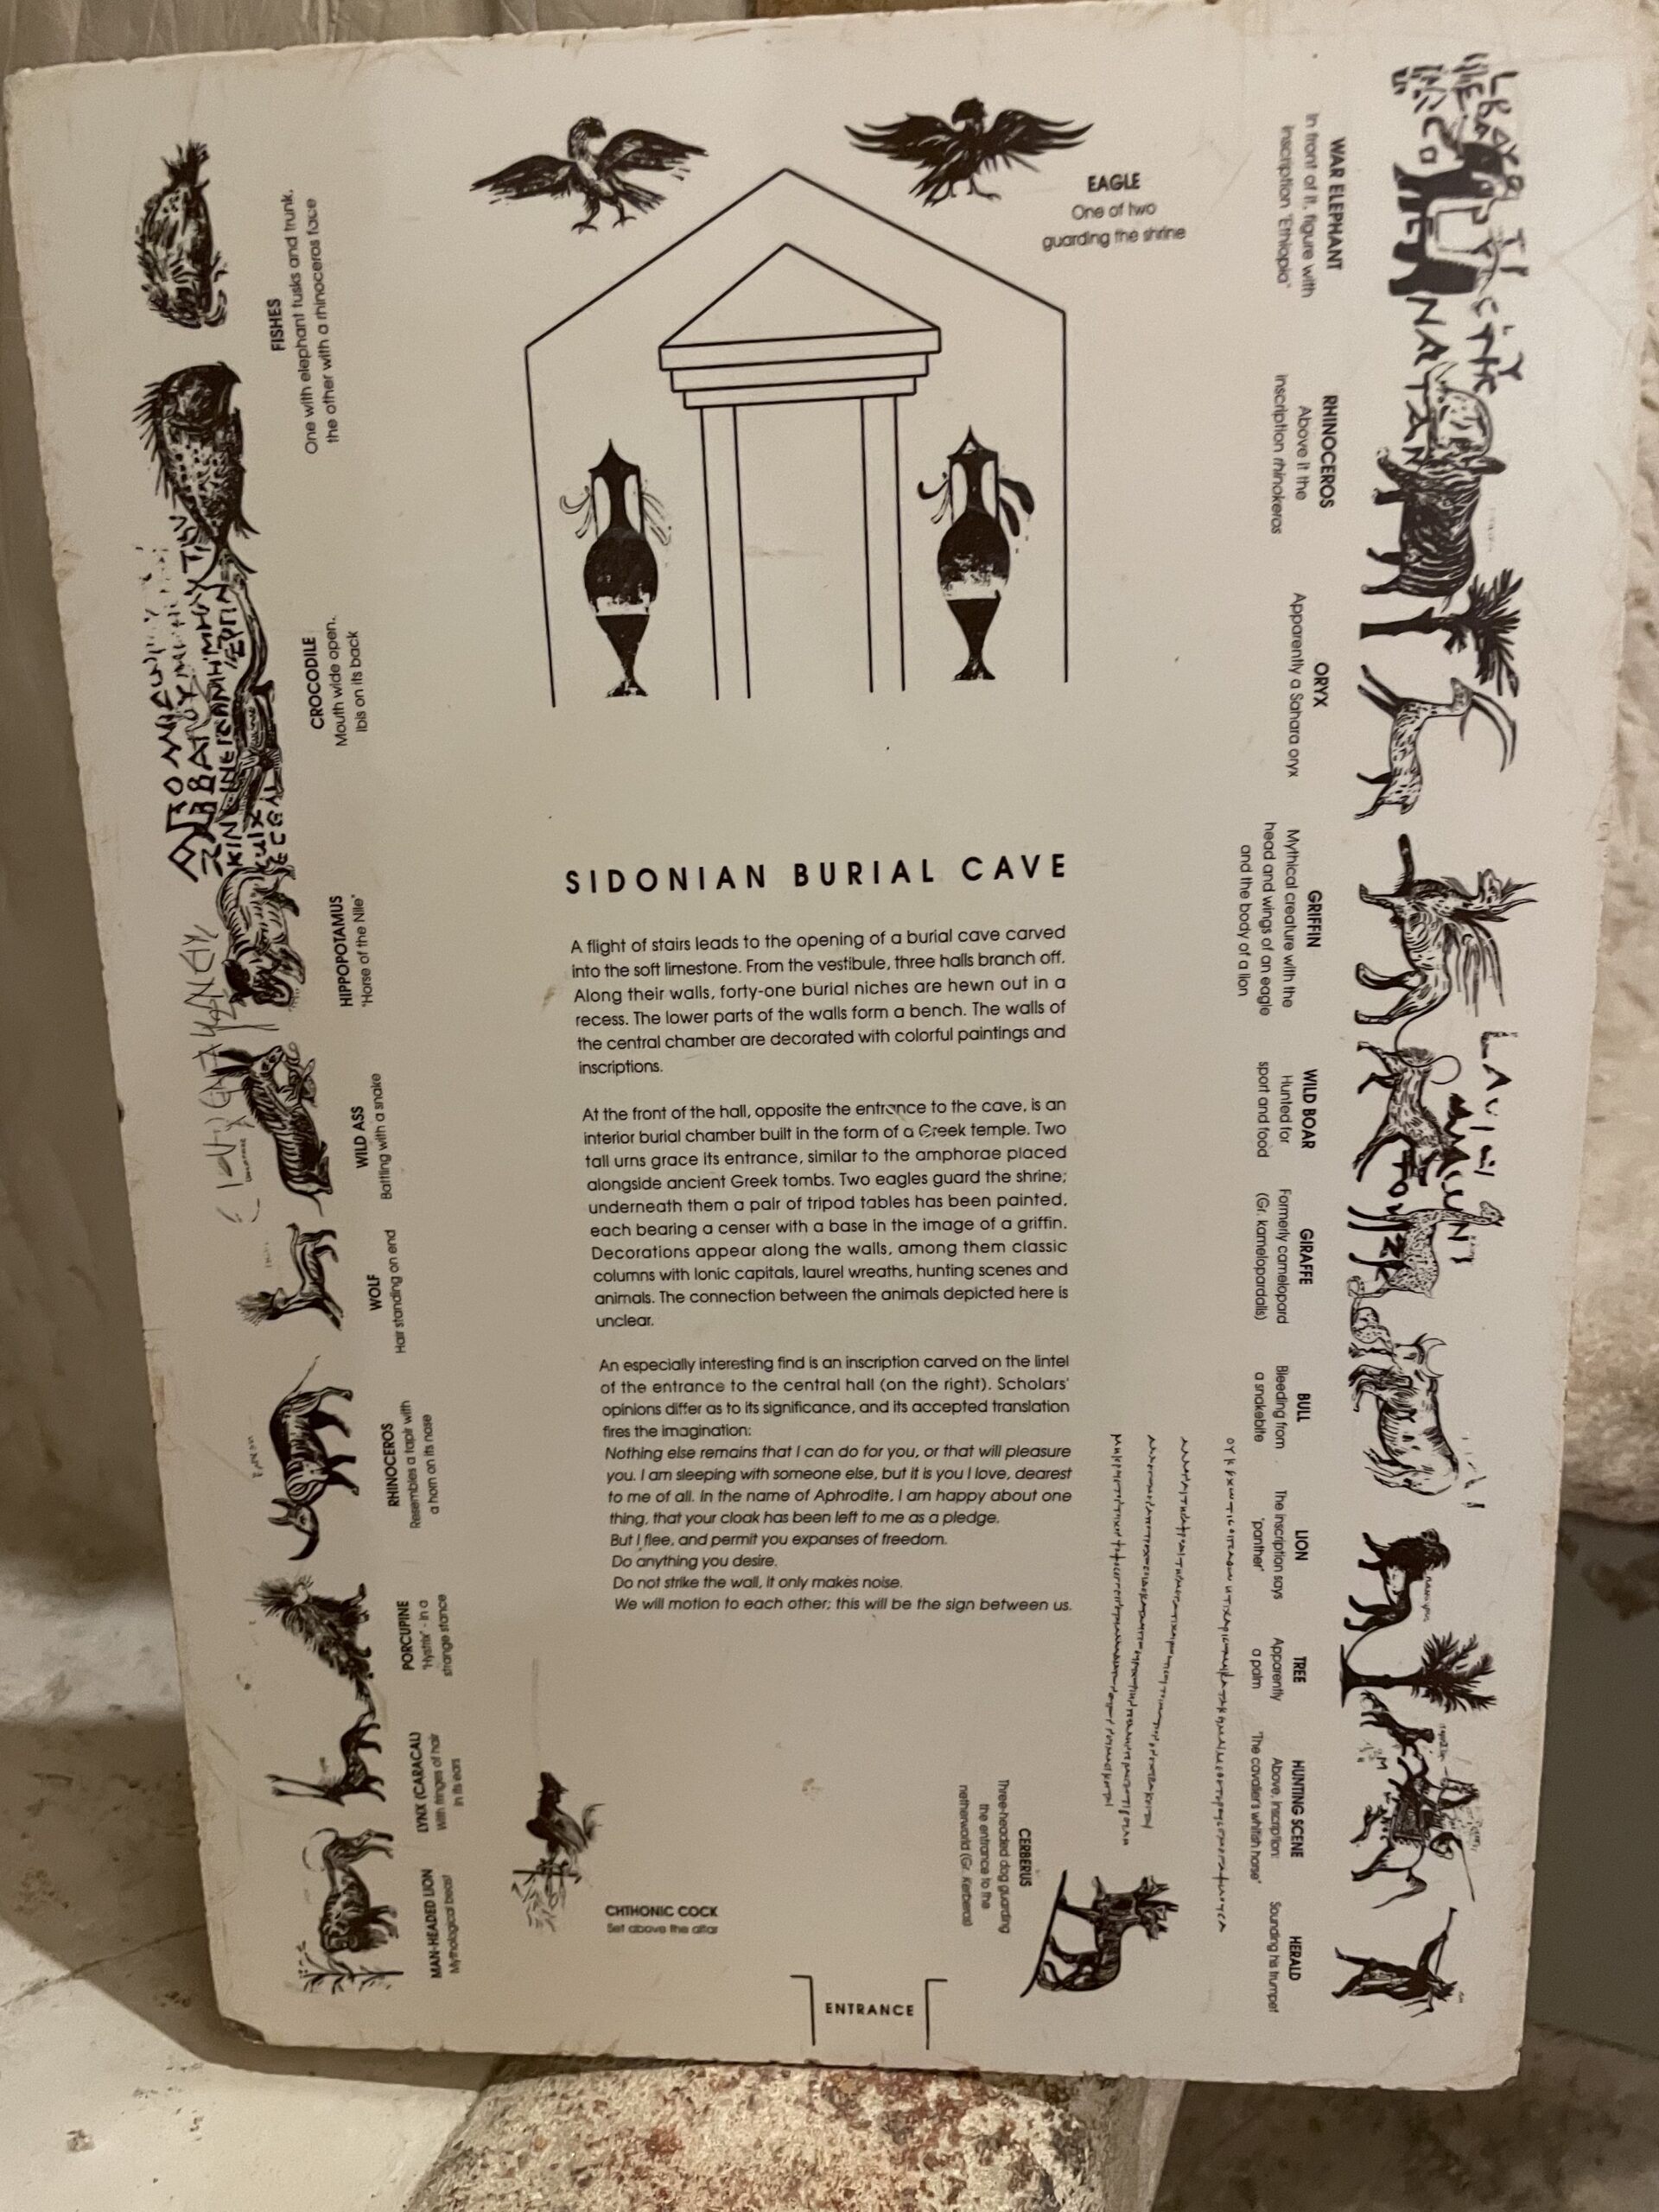 EAGLE
One of two
guarding the shrine
FISHES
One with elephant tusks and trunk,
the other with a rhinoceros face
CROCODILE
Mouth wide open.
Ibis on its back
HIPPOPOTAMUS
"Horse of the Nile"
WILD ASS
Battling with a snake
WOLF
Hair standing on end
RHINOCEROS
Resembles a tapir with
a horn on its nose
PORCUPINE
"Hystrix" - in a
strange stance
LYNX (CARACAL)
With fringes of hair
in its ears
MAN-HEADED LION
Mythological beast
SIDONIAN BURIAL CAVE
A flight of stairs leads to the opening of a burial cave carved
into the soft limestone. From the vestibule, three halls branch off.
Along their walls, forty-one burial niches are hewn out in a
recess. The lower parts of the walls form a bench. The walls of
the central chamber are decorated with colorful paintings and
inscriptions.
At the front of the hall, opposite the entrance to the cave, is an
interior burial chamber built in the form of a Greek temple. Two
tall urns grace its entrance, similar to the amphorae placed
alongside ancient Greek tombs. Two eagles guard the shrine;
underneath them a pair of tripod tables has been painted,
each bearing a censer with a base in the image of a griffin.
Decorations appear along the walls, among them classic
columns with Ionic capitals, laurel wreaths, hunting scenes and
animals. The connection between the animals depicted here is
unclear.
An especially interesting find is an inscription carved on the lintel
of the entrance to the central hall (on the right). Scholars'
opinions differ as to its significance, and its accepted translation
fires the imagination:
Nothing else remains that I can do for you, or that will pleasure
you. I am sleeping with someone else, but it is you I love, dearest
to me of all. In the name of Aphrodite, I am happy about one
thing, that your cloak has been left to me as a pledge.
But I flee, and permit you expanses of freedom.
Do anything you desire.
Do not strike the wall, it only makes noise.
We will motion to each other; this will be the sign between us.
CHTHONIC COCK
Set above the altar
ENTRANCE
CERBERUS
Three-headed dog guarding
the entrance to the
netherworld (Gr. Kerberos)
WAR ELEPHANT
In front of it, figure with
inscription "Ethiopia"
RHINOCEROS
Above it the
inscription rhinokeros
ORYX
Apparently a Sahara oryx
GRIFFIN
Mythical creature with the
head and wings of an eagle
and the body of a lion
WILD BOAR
Hunted for
sport and food
GIRAFFE
Formerly camelopard
(Gr. kamelopardalis)
BULL
Bleeding from
a snakebite
LION
The inscription says
"panther"
TREE
Apparently
a palm
HUNTING SCENE
Above, inscription:
"The cavalier's whitish horse"
HERALD
Sounding his trumpet